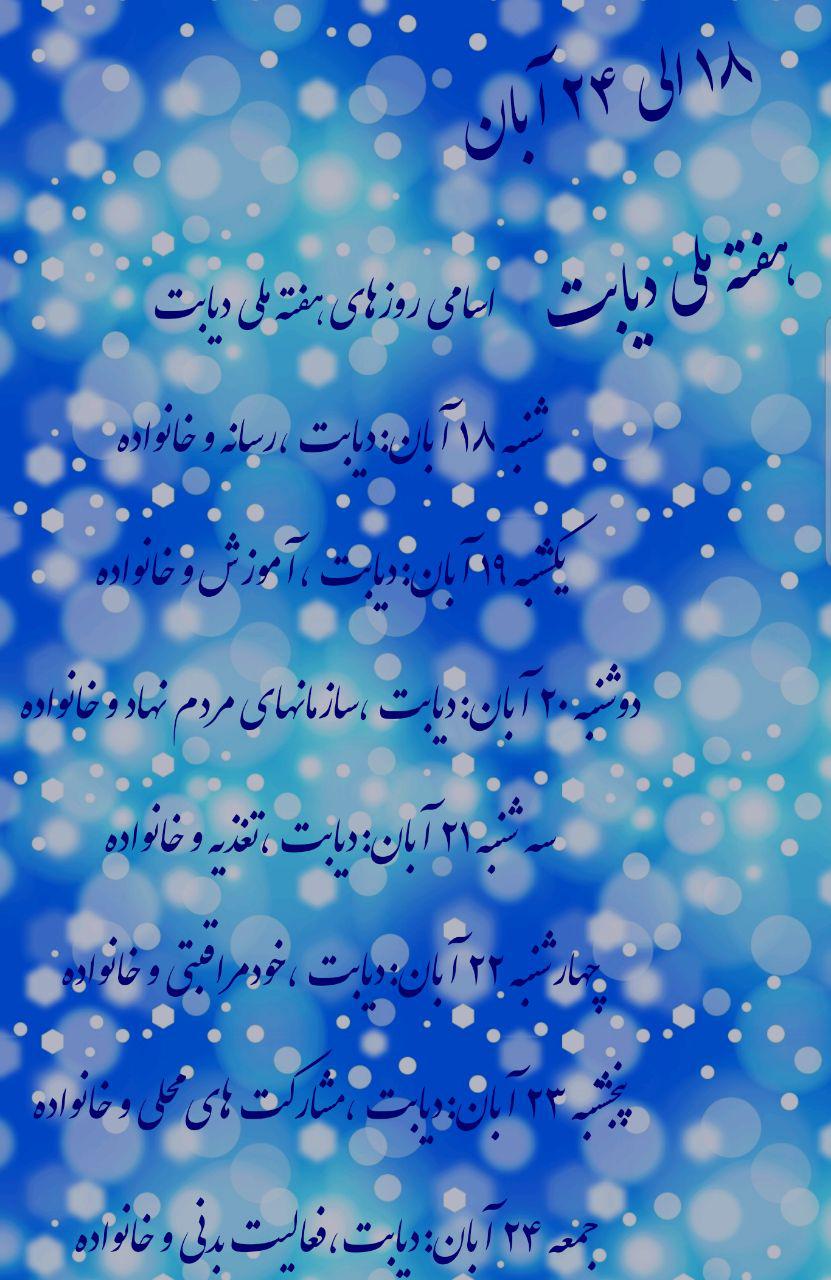 ۱۸ الی ۲۴ آبان
هفته ملی دیابت
اسامی روزهای هفته ملی دیابت
شنبه ۱۸ آبان: دیابت ،رسانه و خانواده
یکشنبه ۱۹ آبان: دیابت ، آموزش و خانواده
دوشنبه ۲۰ آبان: دیابت ،سازمانهای مردم نهاد و خانواده
سه شنبه ۲۱ آبان: دیابت ،تغذیه و خانواده
چهارشنبه ۲۲ آبان: دیابت ، خودمراقبتی و خانواده
پنجشنبه ۲۳ آبان: دیابت ،مشارکت های محلی و خانواده
جمعه ۲۴ آبان: دیابت ،فعالیت بدنی و خانواده